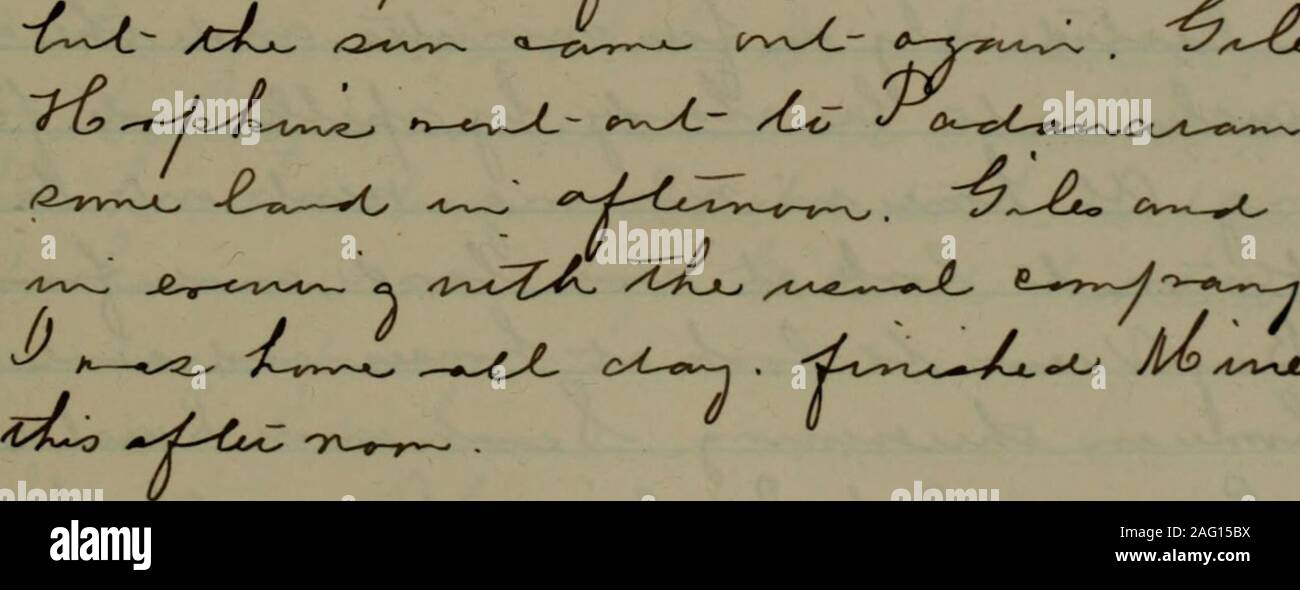 but the sun came out again. Gile
Hopkins went out to Padanaram
some land in afternoon. Giles and
in evening with the usual company
I was home all day. finished Mine
this afternoon.
alamy
Image ID: 2AG15BX
www.alamy.com